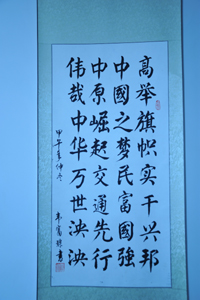 高举旗帜实干兴邦
中國之梦民富國強
中原崛起交通先行
伟哉中华万世泱泱
甲午年仲冬